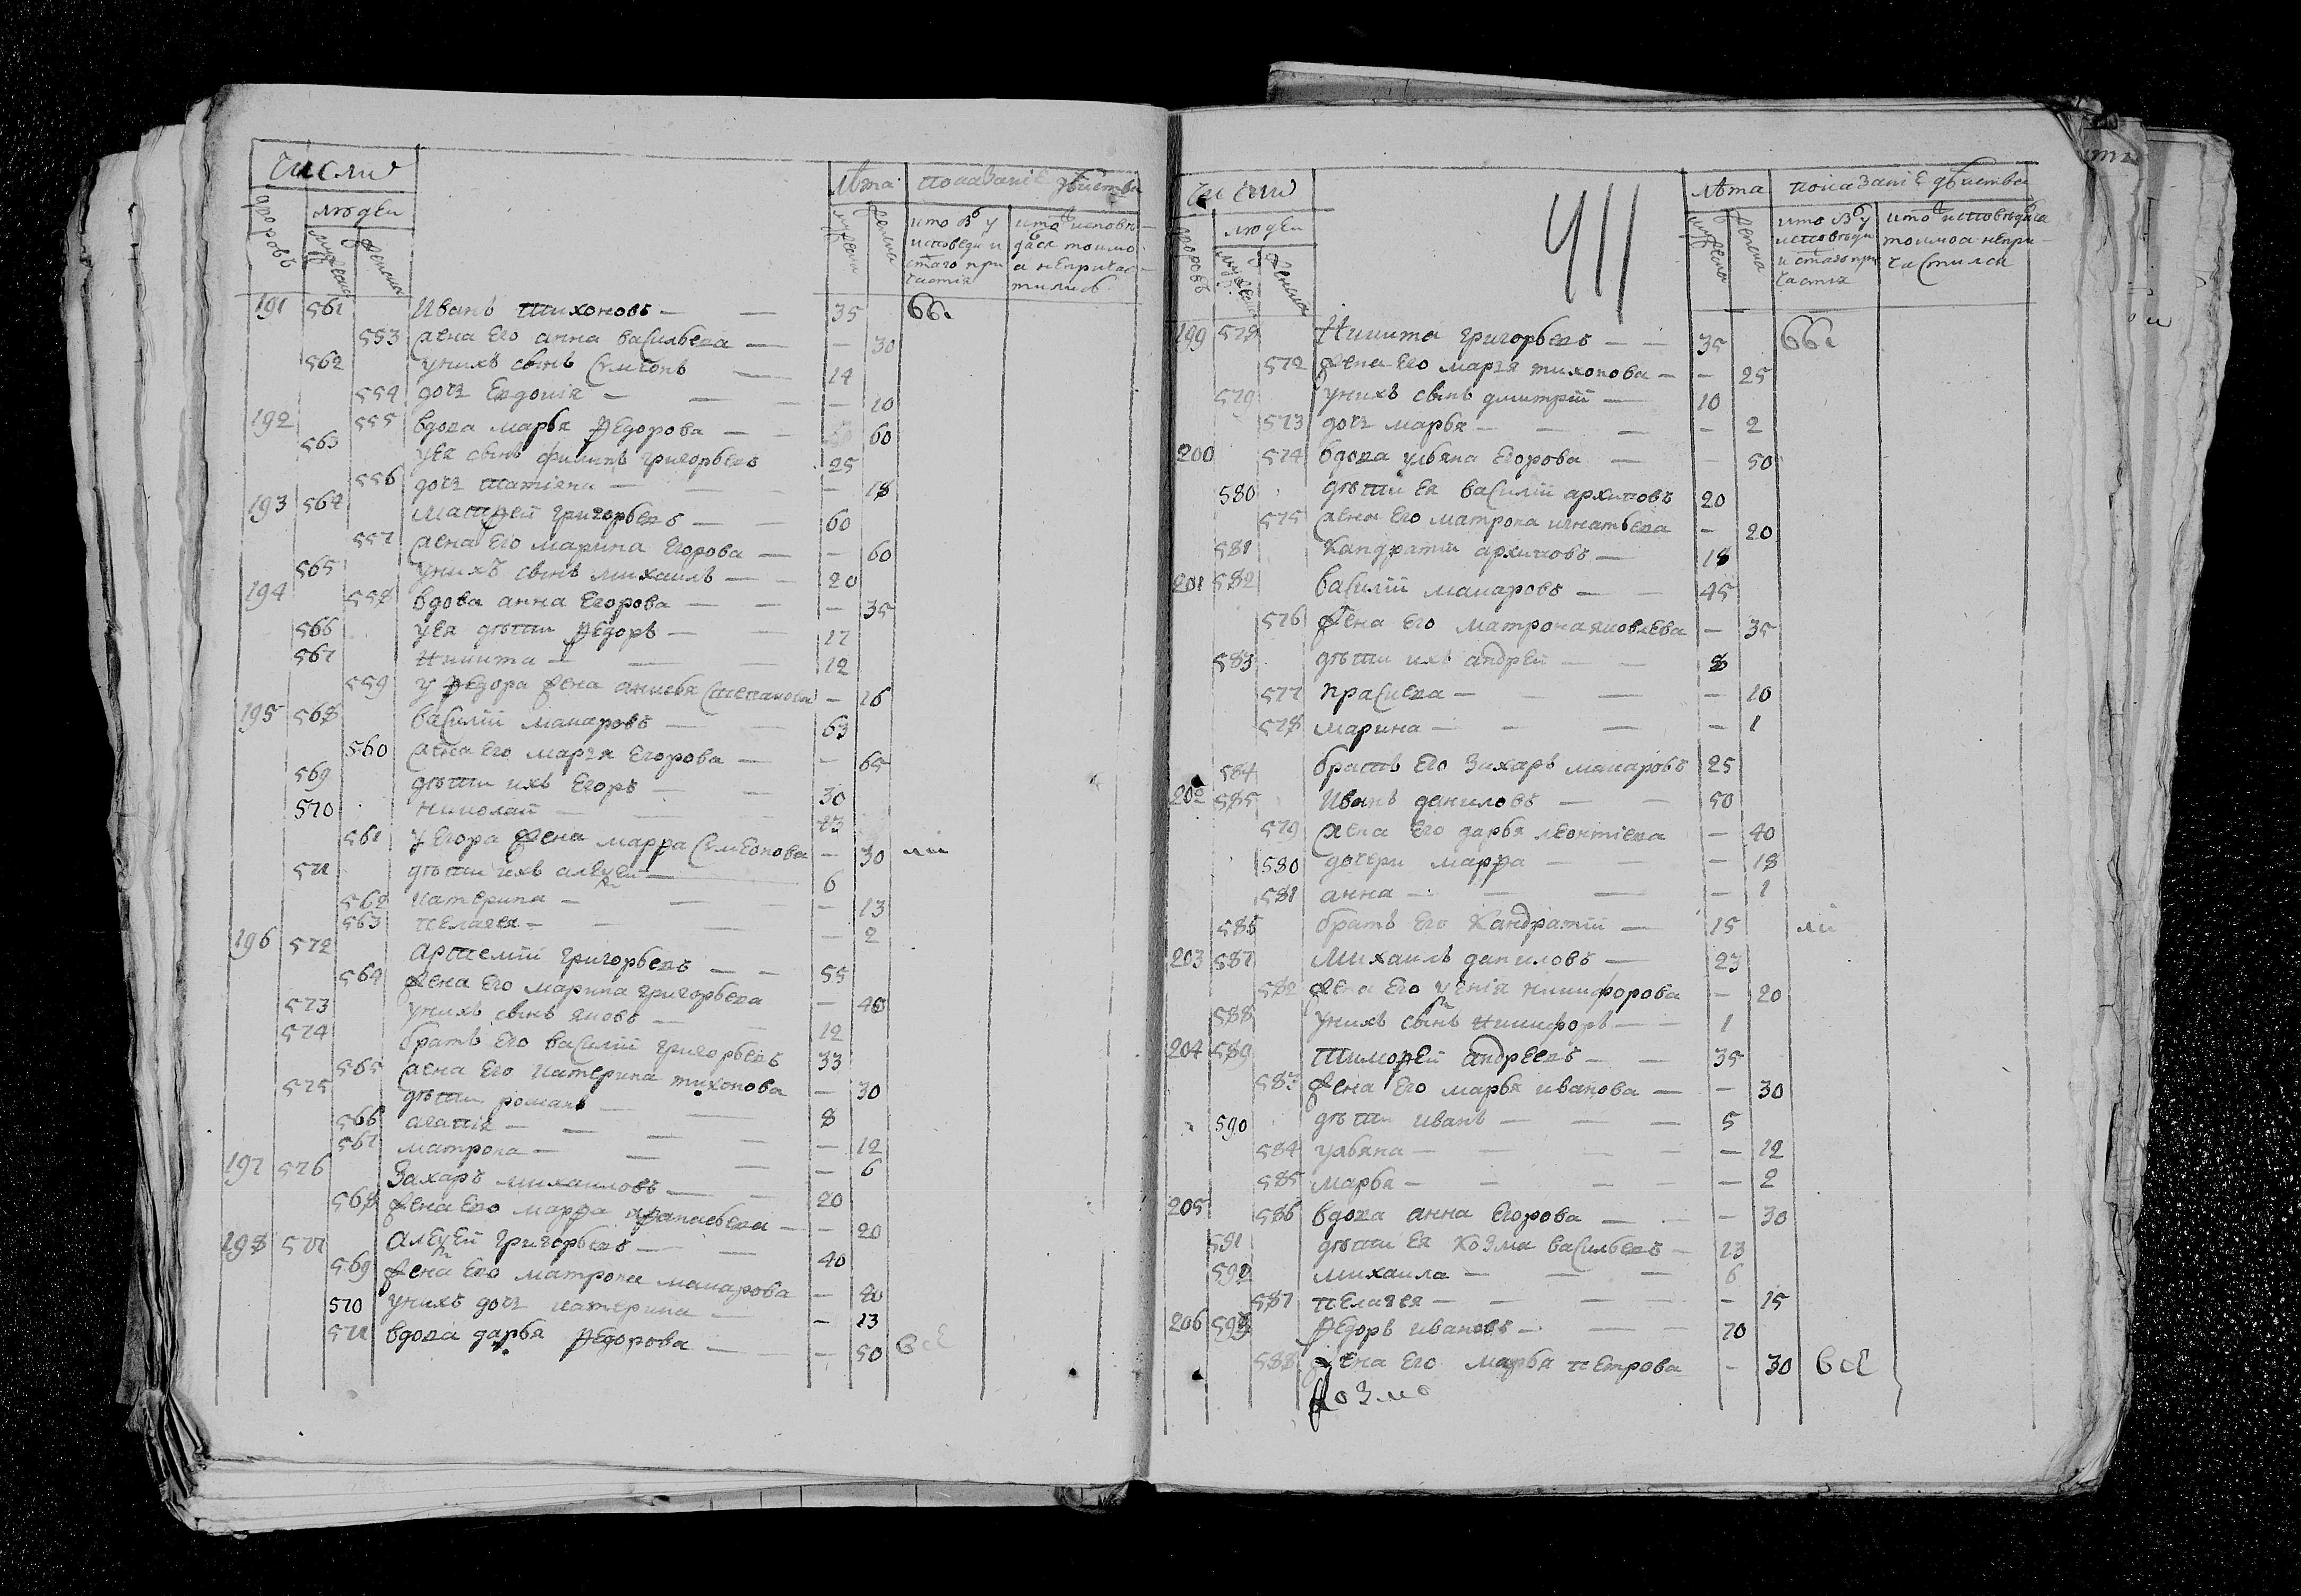 число
дворовъ людеи лѣта показаниЕ дѣйства
мужеска женска мужеска женска кто былъ у исповеди и стаго причастия кто исповѣдался токмо а непричастились
191 561 Иванъ тихоновъ — — 35
553 жена Его анна васильева — — 30
562 у нихъ сынъ сЕмЕонъ — 14
554 дочь Евдокия — — — 10
192 555 вдова марья ѲЕдорова — — 60
563 у Ея сынъ филипъ григорьевъ 25
556 дочь татиана — — — 18
193 564 матѲей григорьевъ — — 60
557 жена Его марина Егорова — — 60
565 у нихъ сынъ михаилъ — — 20
194 558 вдова анна Егорова — — — 35
566 у Ея дѣти ѲЕдоръ — — 17
567 Никита — — — 12
559 у ѲЕдора жена анисья степанова — 16
195 568 василий макаровъ — — 63
560 жена Его марья Егорова — — 65
569 дѣти ихъ Егоръ — — 30
570 николай — — — 23
561 у Егора жена марѲа сЕмЕонова — 30
571 дѣти ихъ алЕксЕй — — 6
562 катерина — — — — 13
563 пЕлагея — — — — 2
196 572 артемий григорьевъ — — 55
564 жена Его марина григорьева — 40
573 у нихъ сынъ яковъ — — 12
574 братъ Его василий григорьевъ 33
565 жена Его катерина тихонова — 30
575 дѣти романъ — — 8
566 агапия — — — — 12
567 матрона — — — — 6
197 576 Захаръ михаиловъ — — 20
568 жена Его марѲа аѲанасьева — — 20
198 577 алЕксЕй григорьевъ — — 40
569 жена Его матрона макарова — 20
570 у нихъ дочь катерина — — 13
571 вдова дарья ѲЕдорова — — — 50 всЕ
411
число
дворовъ людеи лѣта показаниЕ дѣйства
мужеска женска мужеска женска кто былъ у исповѣди и стаго причастия кто исповѣдался токмо а непричастился
199 578 Никита григорьевъ — — 35
572 жена Его марья тихонова — — 25
579 у нихъ сынъ дмитрий — 10
573 дочь марья — — — — 2
200 574 вдова ульяна Егорова — — 50
580 дѣти Ея василий архиповъ 20
575 жена Его матрона игнатьева — 20
581 Кандратий архиповъ — 18
201 582 василий макаровъ — — 45
576 жена Его матрона яковлЕва — 35
583 дѣти ихъ андрЕй — — 8
577 прасковя — — — — 10
578 марина — — — — 1
584 братъ Его Захаръ макаровъ 25
202 585 Иванъ даниловъ — — 50
579 жена Его дарья лЕонтиева — 40
580 дочери марѲа — — — 18
581 анна — — — — 1
586 братъ Его Кандратий — 15
203 587 Михаилъ даниловъ — 23
582 жена Его ксЕния никифорова — 20
588 у нихъ сынъ никифоръ — — 1
204 589 ТимоѲЕй андрЕевъ — — 35
583 жена Его марья иванова — — 30
590 дѣти иванъ — — — 5
584 ульяна — — — — — 12
585 марья — — — — — 2
205 586 вдова анна Егорова — — — 30
591 дѣти Ея козма васильевъ — 13
592 михаила — — — 6
587 пЕлагея — — — — — 15
206 593 ѲЕдоръ ивановъ — — — 70
588 жена Его марья пЕтрова — 30 всЕ